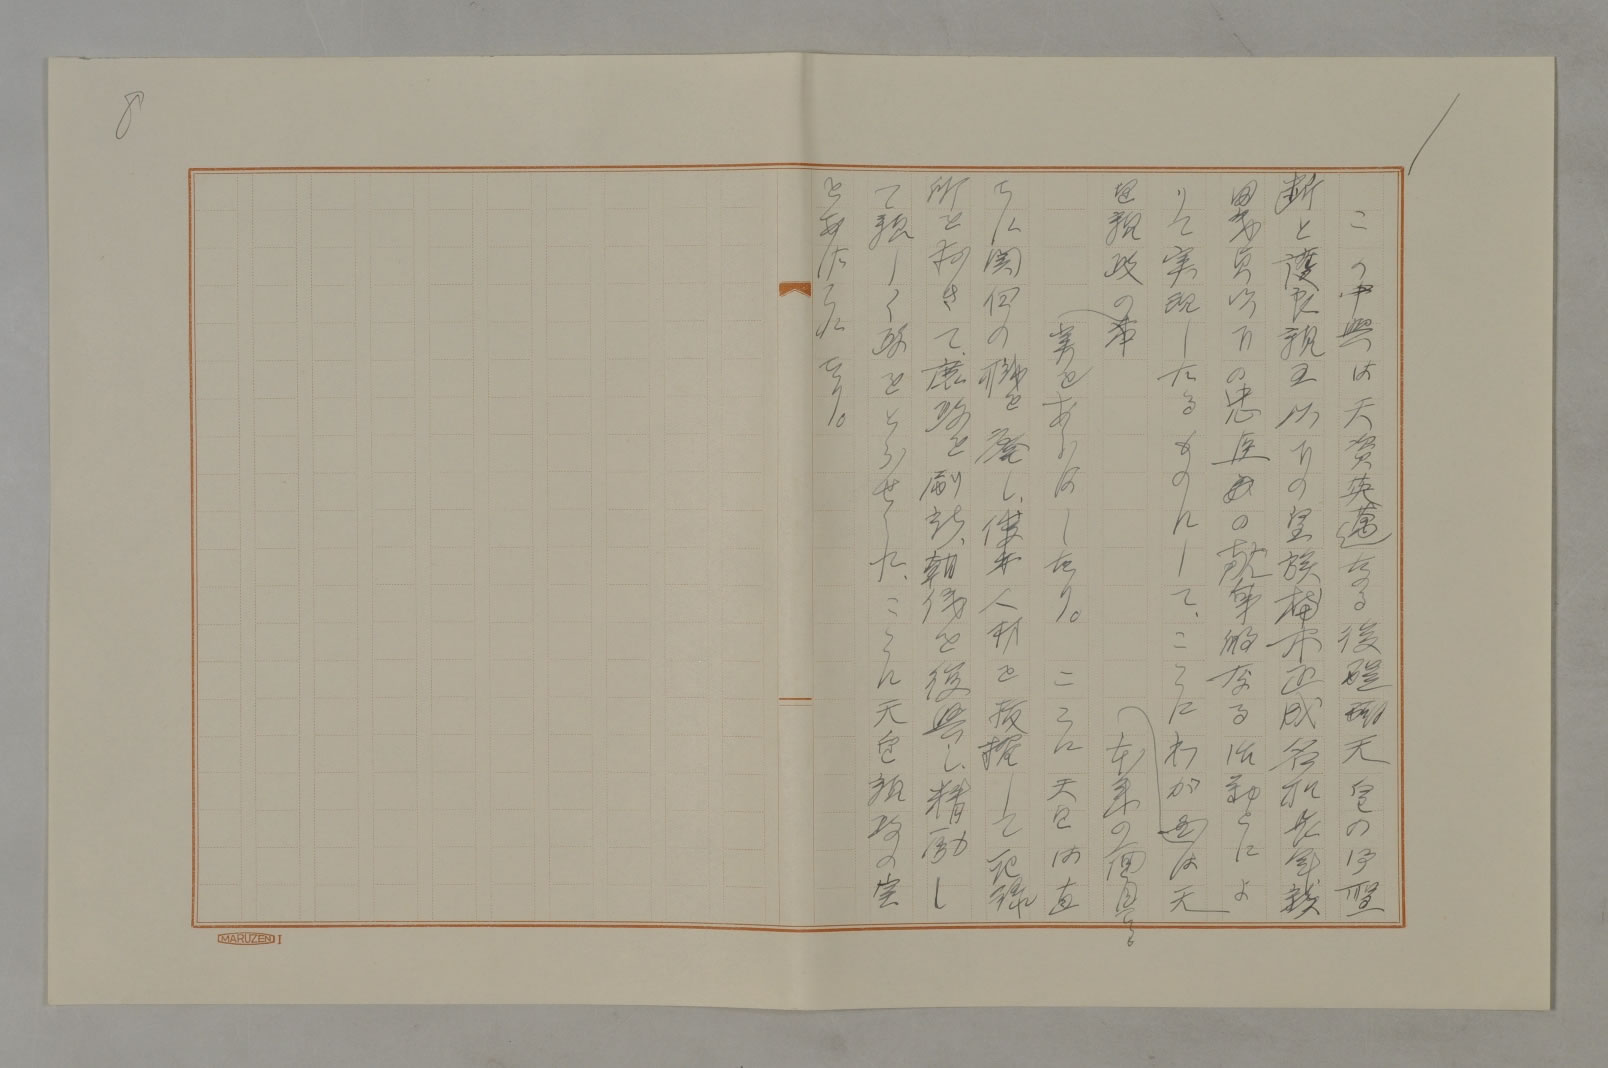 8
この中興は天資英邁なる後醍醐天皇の御聖
断と護良親王以下の皇族楠木正成名和長年結
城宗広以下の忠臣の献身的なる活動とによ
りて実現したるものにして、ここにわが国は天
皇親政の本来の面目を
実をあらはしたり。ここに天皇は直
ちに関白の職を廃し、俊才人材を抜擢して記録
所を利きて、庶政を刷新、朝儀を復興し、精励し
て親しく政をとらせられた、ここに天皇親政の実
をあげられたり。
MARUZEN I